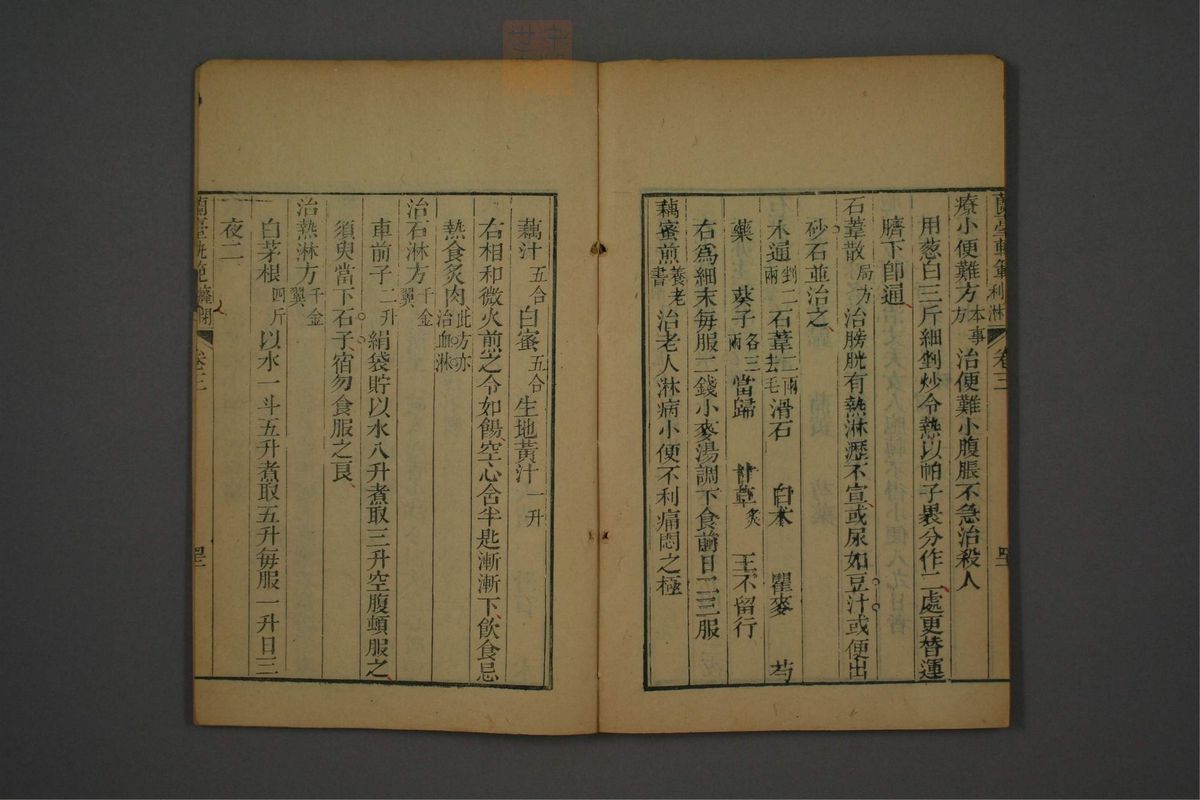 蘭臺軌範 利淋 卷三
療小便難方 本事方 治便難小腹脹不急治殺人
用葱白三斤細剉炒令熱以帕子裹分作二處更替運
臍下卽通
石葦散 局方 治膀胱有熱淋瀝不宣或尿如豆汁或便出
砂石並治之
木通 剉二兩 石葦 二兩去毛 滑石 白朮 瞿麥 芍
藥 葵子 各三兩 當歸 甘草 炙 王不留行
右爲細末每服二錢小麥湯調下食前日二三服
藕蜜煎 養老書 治老人淋病小便不利痛悶之極
藕汁 五合 白蜜 五合 生地黃汁 一升
右相和微火煎之令如餳空心含半匙漸漸下飮食忌
熱食炙肉 此方亦治血淋
治石淋方 千金翼
車前子 二升 絹袋貯以水八升煮取三升空腹頓服之
須臾當下石子宿勿食服之良
治熱淋方 千金翼
白茅根 四斤 以水一斗五升煮取五升每服一升日三
夜二
蘭臺軌範 癃閉 卷三